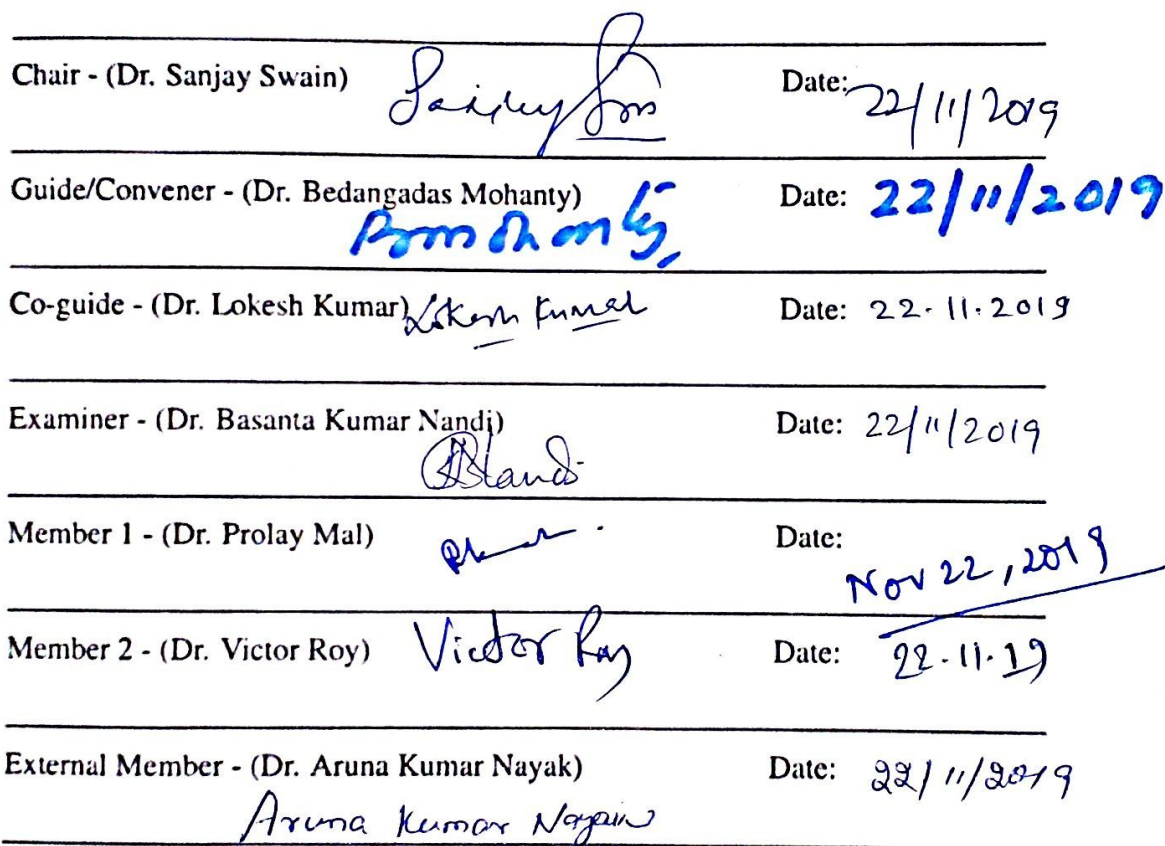 Chair - (Dr. Sanjay Swain) Date: 22/11/2019
Guide/Convener - (Dr. Bedangadas Mohanty) Date: 22/11/2019
Bmohanty
Co-guide - (Dr. Lokesh Kumar) Lokesh Kumar Date: 22.11.2019
Examiner - (Dr. Basanta Kumar Nandi) Date: 22/11/2019
Member 1 - (Dr. Prolay Mal) Date:
Nov 22, 2019
Member 2 - (Dr. Victor Roy) Victor Roy Date: 22.11.19
External Member - (Dr. Aruna Kumar Nayak) Date: 22/11/2019
Aruna Kumar Nayak